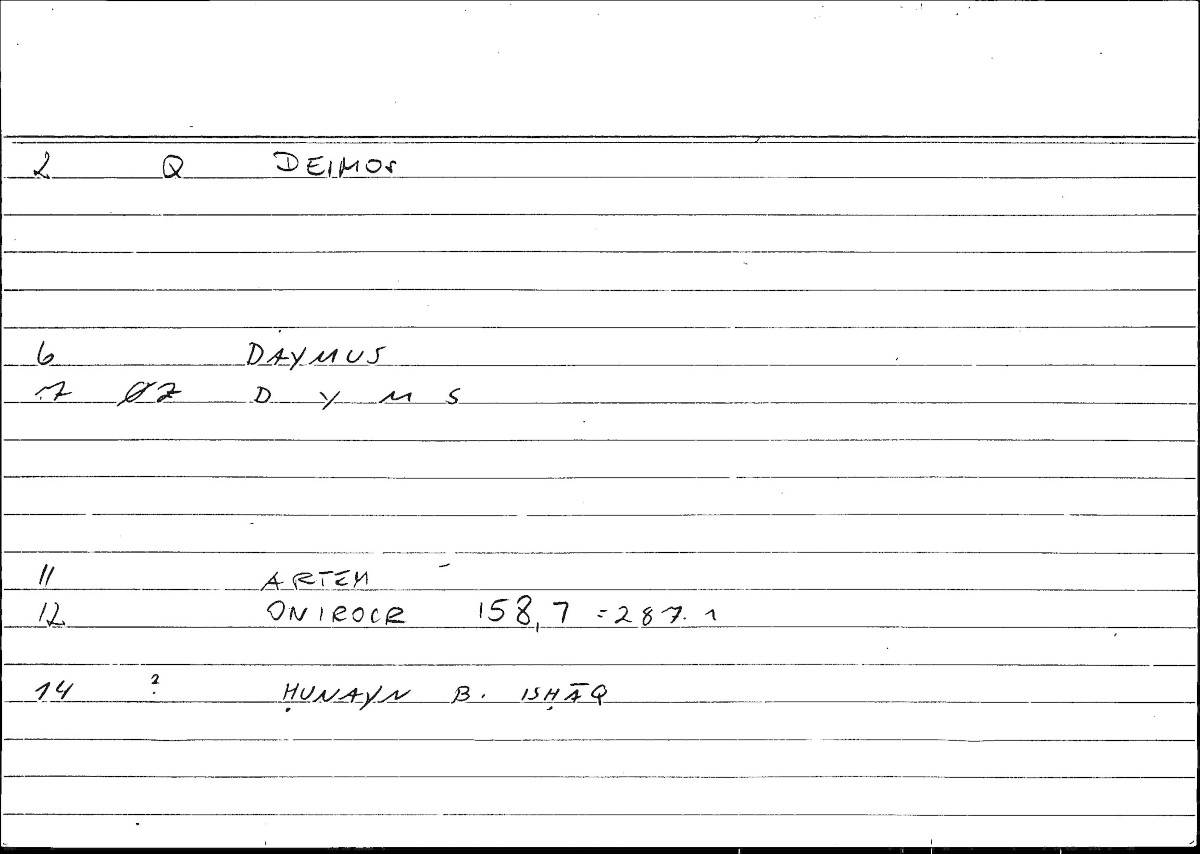 2 Q DEIMOS
6 DAYMUS
7 Ø7 D Y M S
11 ARTEM
12 ONIROCR 158,7 = 287.1
14 ? ḤUNAYN B. ISḤĀQ